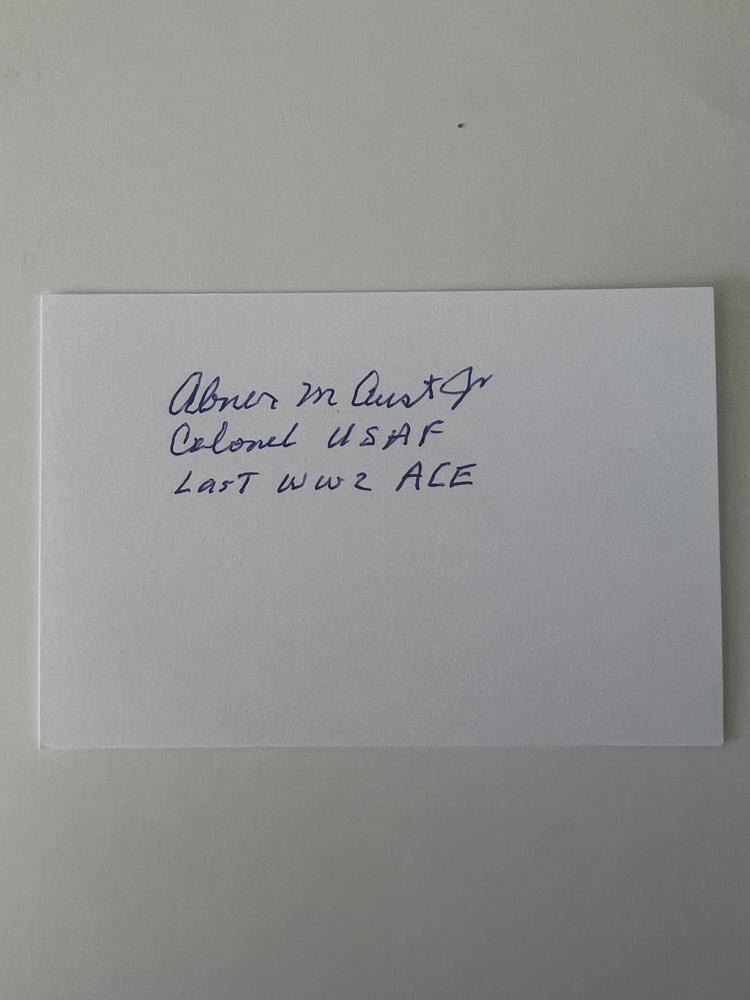 Abner M. Aust Jr
Colonel USAF
Last WW2 ACE